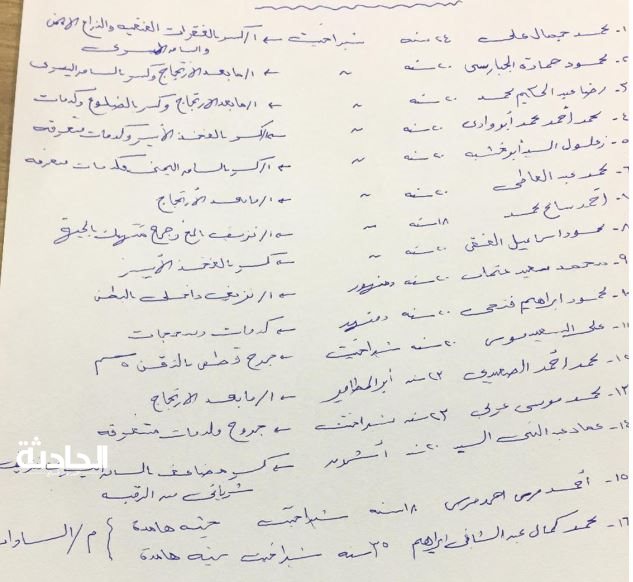 ١- محمد جمال على ٢٤ سنه شبراخيت ← ا/ كسر بالفقرات العنقيه والذراع الايمن
والساق اليسرى
٢- محمود حمادة الجبارسى ٢٠ سنه ~ ← ا/ مابعد الأرتجاج وكسر بالساق اليسرى
٣- رضا عبد الحكيم محمد ٢٠ سنه ~ ← ا/ مابعد الارتجاج وكسر بالضلوع وكدمات
٤- محمد أحمد محمد أبو وادى ٢٠ سنه ~ ← ا/ كسر بالفخذ الأيسر وكدمات متفرقه
٥- زغلول السيد أبو خشبه ٢٠ سنه ~ ← ا/ كسر بالساق اليمنى وكدمات متفرقه
٦- محمد عبد العاطى ٢٠ سنه ~ ← ا/ مابعد الأرتجاج
٧- أحمد سامح محمد ١٨ سنه ~ ← ا/ نزيف بالمخ وجرح بالجبهة
٨- محمود اسماعيل الفقى ٢٠ سنه ~ ← كسر بالفخذ الأيسر
٩- محمد سعيد عثمان ٢٠ سنه دمنهور ← ا/ نزيف داخلى بالبطن
١٠- محمود ابراهيم فتحى ٢٠ سنه دمنهور ← كدمات وسحجات
١١- على السعيد موسى ٢٠ سنه شبراخيت ← جرح قطعى بالذقن ٥ سم
١٢- محمد أحمد الصعيدى ٢٣ سنه أبو المطامير ← ا/ مابعد الارتجاج
١٣- محمد موسى عونى ٢٣ سنه شبراخيت ← جروح وكدمات متفرقه
١٤- عماد عبد النبى السيد ٢٠ سنه ← كسر مضاعف بالساق
شريانى من الرقبه
١٥- أحمد مرسى احمد مرسى ١٨ سنه شبراخيت جثه هامدة
١٦- محمد كمال عبد الشافى ابراهيم ٣٥ سنه شبراخيت جثه هامدة } م/ السادات
الحادثة